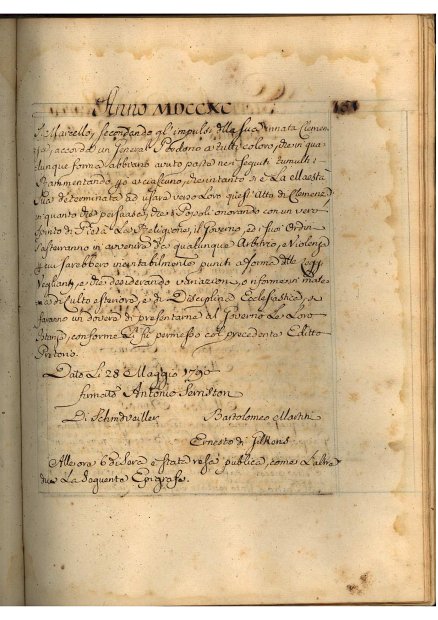 Anno MDCCXC
S. Marcello, secondando gl'impulsi della Sua innata Clemen-
za, accorda un General Perdono a tutti coloro, che in qua-
lunque forma abbiano avuto parte nei seguiti tumulti:
Rammentando, a ciascuno, che in tanto è La Maestà
Sua determinata ad usare verso Loro quest'Atto di Clemenza
in quanto che persuasa, che i Popoli onorando con un vero
spirito di Pietà La Religione, il Governo, ed i suoi Ordini
s'asterranno in avvenire da qualunque Arbitrio, e Violenza
che sarebbero inevitabilmente puniti a forma delle Leggi
Veglianti, e che desiderando variazioni, o riforme in mate-
ria di Culto esteriore, e di Disciplina Ecclesiastica, si
faranno un dovere di presentarne al Governo Le Loro
Istanze, conforme Li fu permesso col precedente Editto
Dato Li 28 Maggio 1790
firmato Antonio Serristori
Di Schmidveiller Bartolomeo Martini
Ernesto di
Alle ore 6 di Sera è stata resa publica, come L'altre
due La seguente Epigrafe.